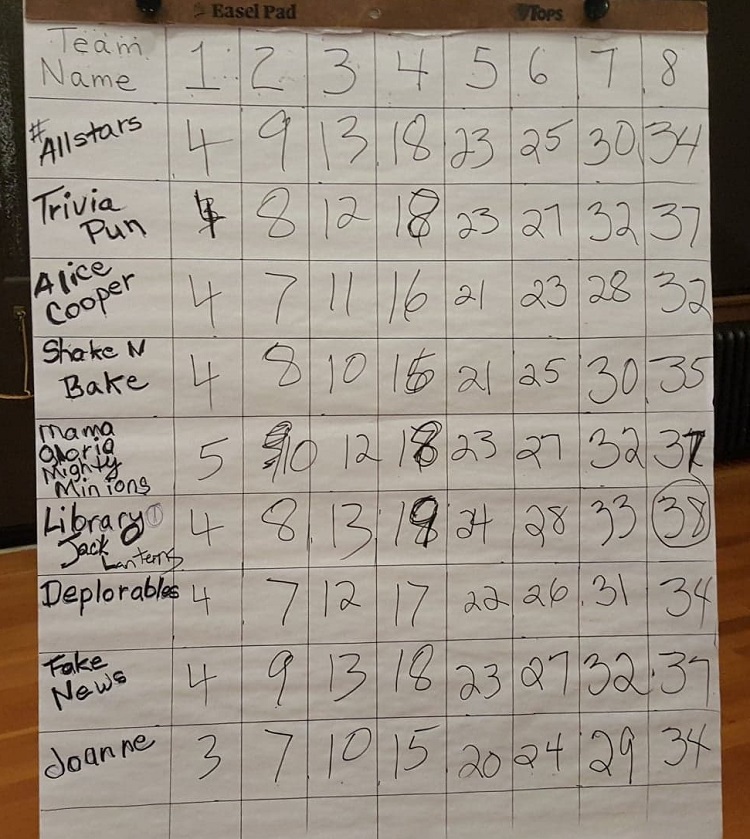 Easel Pad TOPS
Team Name 1 2 3 4 5 6 7 8
#Allstars 4 9 13 18 23 25 30 34
Trivia Pun 4 8 12 18 23 27 32 37
Alice Cooper 4 7 11 16 21 23 28 32
Shake N Bake 4 8 10 15 21 25 30 35
Mama Gloria Mighty Minions 5 10 12 18 23 27 32 37
Library O Jack Lanterns 4 8 13 19 24 28 33 38
Deplorables 4 7 12 17 22 26 31 34
Fake News 4 9 13 18 23 27 32 37
Joanne 3 7 10 15 20 24 29 34